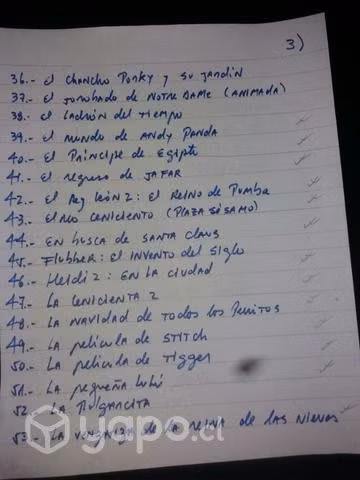 3)
36.- El Chancho Porky y su Jardin
37.- El Jorobado de NOTRE DAME (ANIMADA)
38.- El ladrón del tiempo
39.- El mundo de Andy Panda
40.- El Príncipe de Egipto
41.- El regreso de JAFAR
42.- El Rey León 2: El REINO de Pumba
43.- El Río CENICIENTO (PLAZA SÉSAMO)
44.- EN busca de SANTA Claus
45.- Flubber: El INVENTO del Siglo
46.- Heidi 2: EN LA CIUDAD
47.- LA CENICIENTA 2
48.- LA NAVIDAD de TODOS LOS Perritos
49.- LA película de STITCH
50.- LA película de Tigger
51.- LA pequeña Lulú
52.- LA Pulgarcita
53.- LA venganza de la REINA de LAS Nieves
yapo.cl